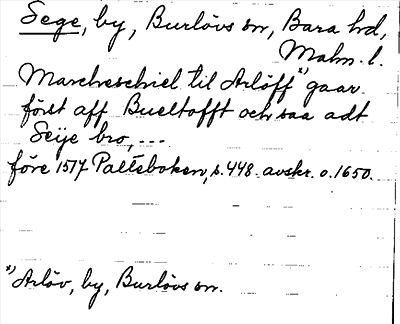 Sege, by, Burlövs sn, Bara hd,
Malm. l.
Marcheschiel til Arlöff x) gaar
först aff Bueltofft och saa adt
Seije bro, ---
före 1517 Palteboken, s. 448. avskr. o. 1650.
x) Arlöv, by, Burlövs sn.